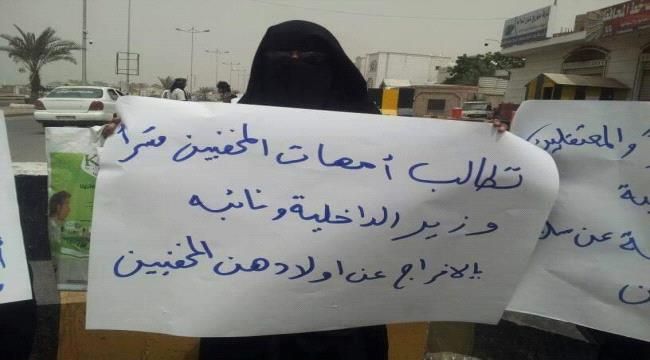 تطالب أمهات المخفيين قسراً
وزير الداخلية ونائبه
بالافراج عن اولادهن المخفيين
والمعتقلين
ة عن